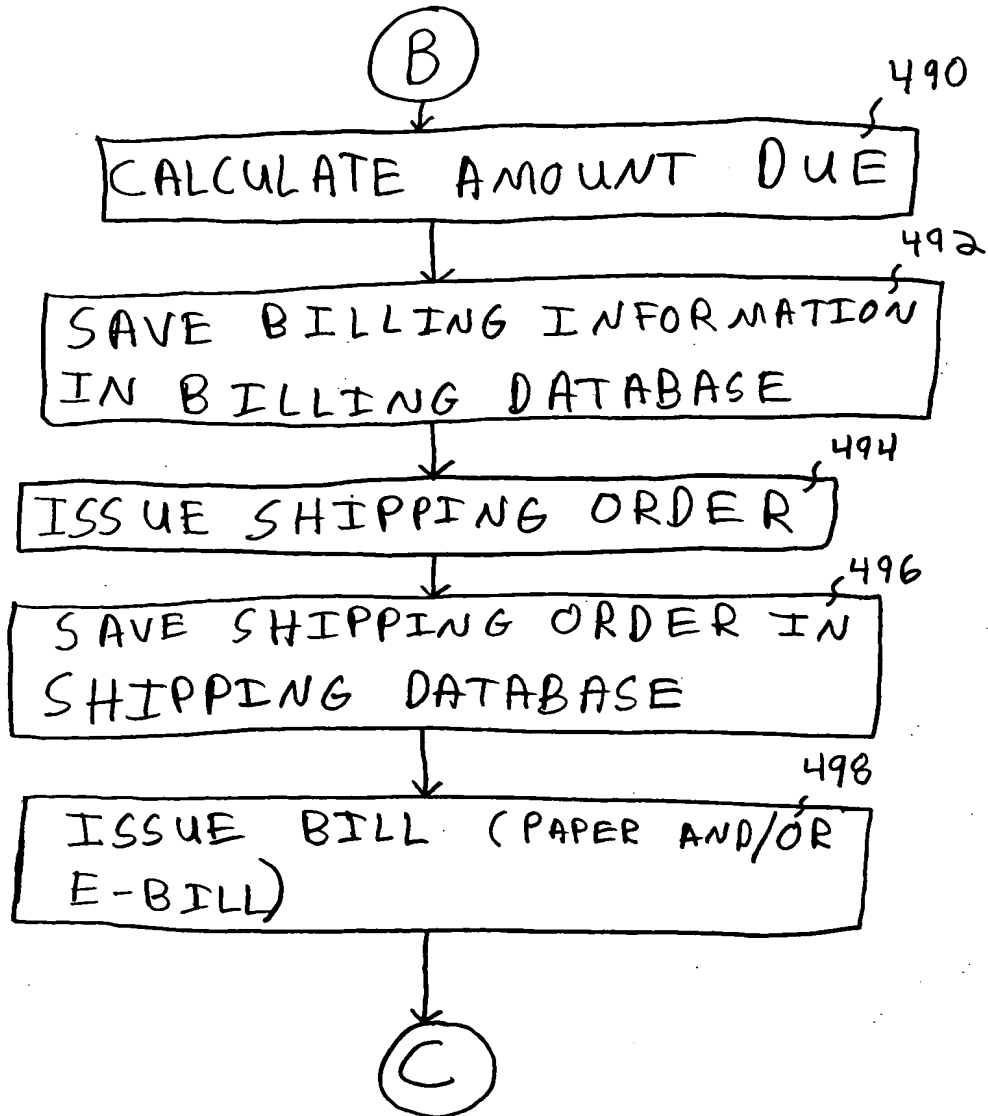 B
490
CALCULATE AMOUNT DUE
492
SAVE BILLING INFORMATION
IN BILLING DATABASE
494
ISSUE SHIPPING ORDER
496
SAVE SHIPPING ORDER IN
SHIPPING DATABASE
498
ISSUE BILL (PAPER AND/OR
E-BILL)
C